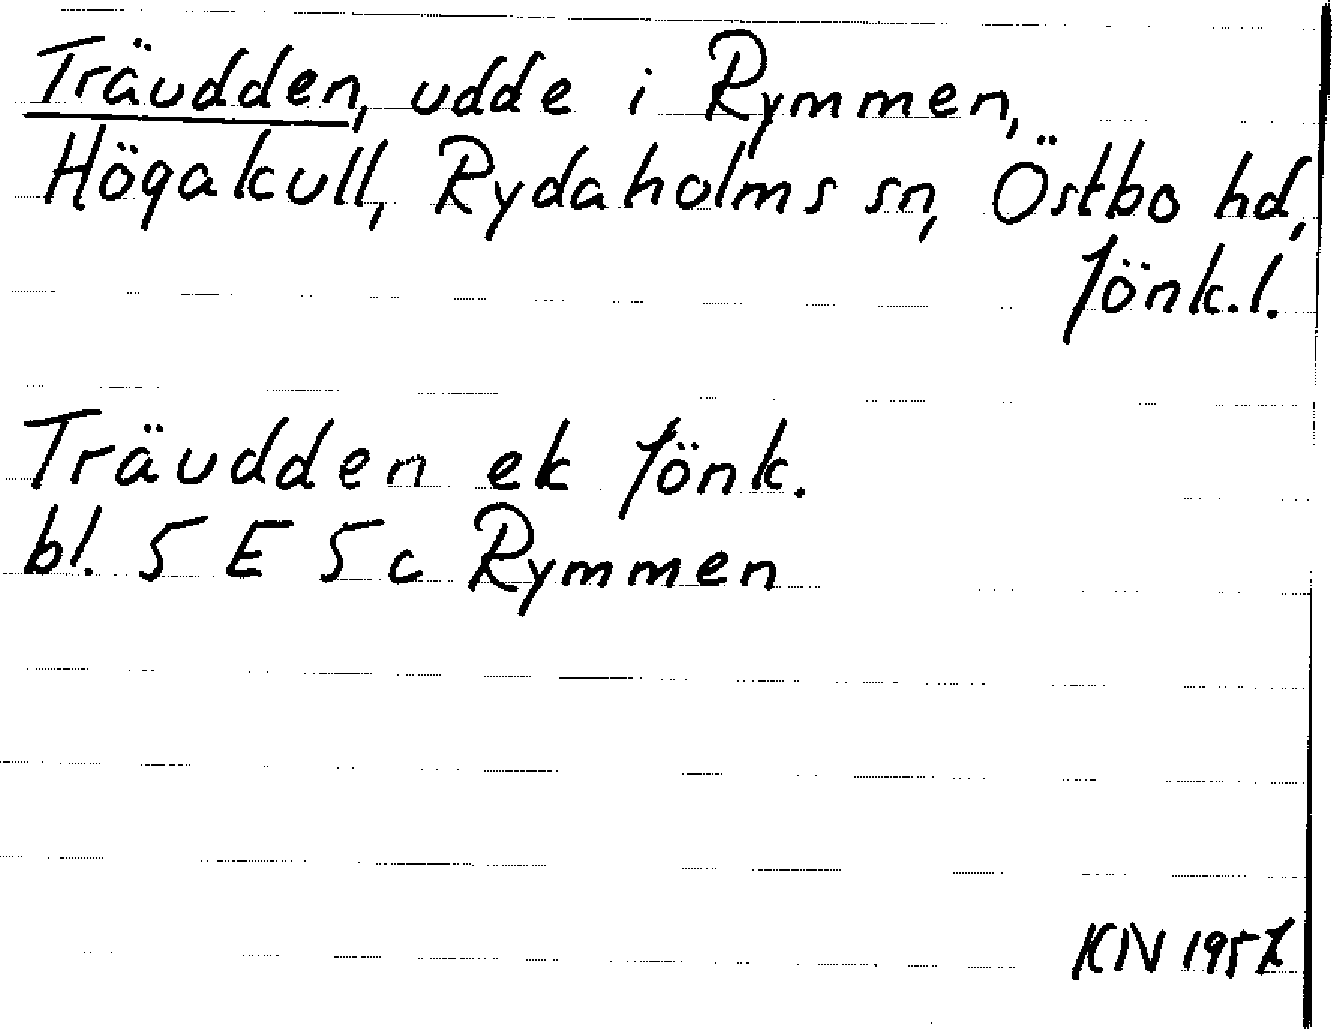 Träudden, udde i Rymmen,
Högakull, Rydaholms sn, Östbo hd,
Jönk.l.
Träudden ek Jönk.
bl. 5 E 5 c Rymmen
KN 1957